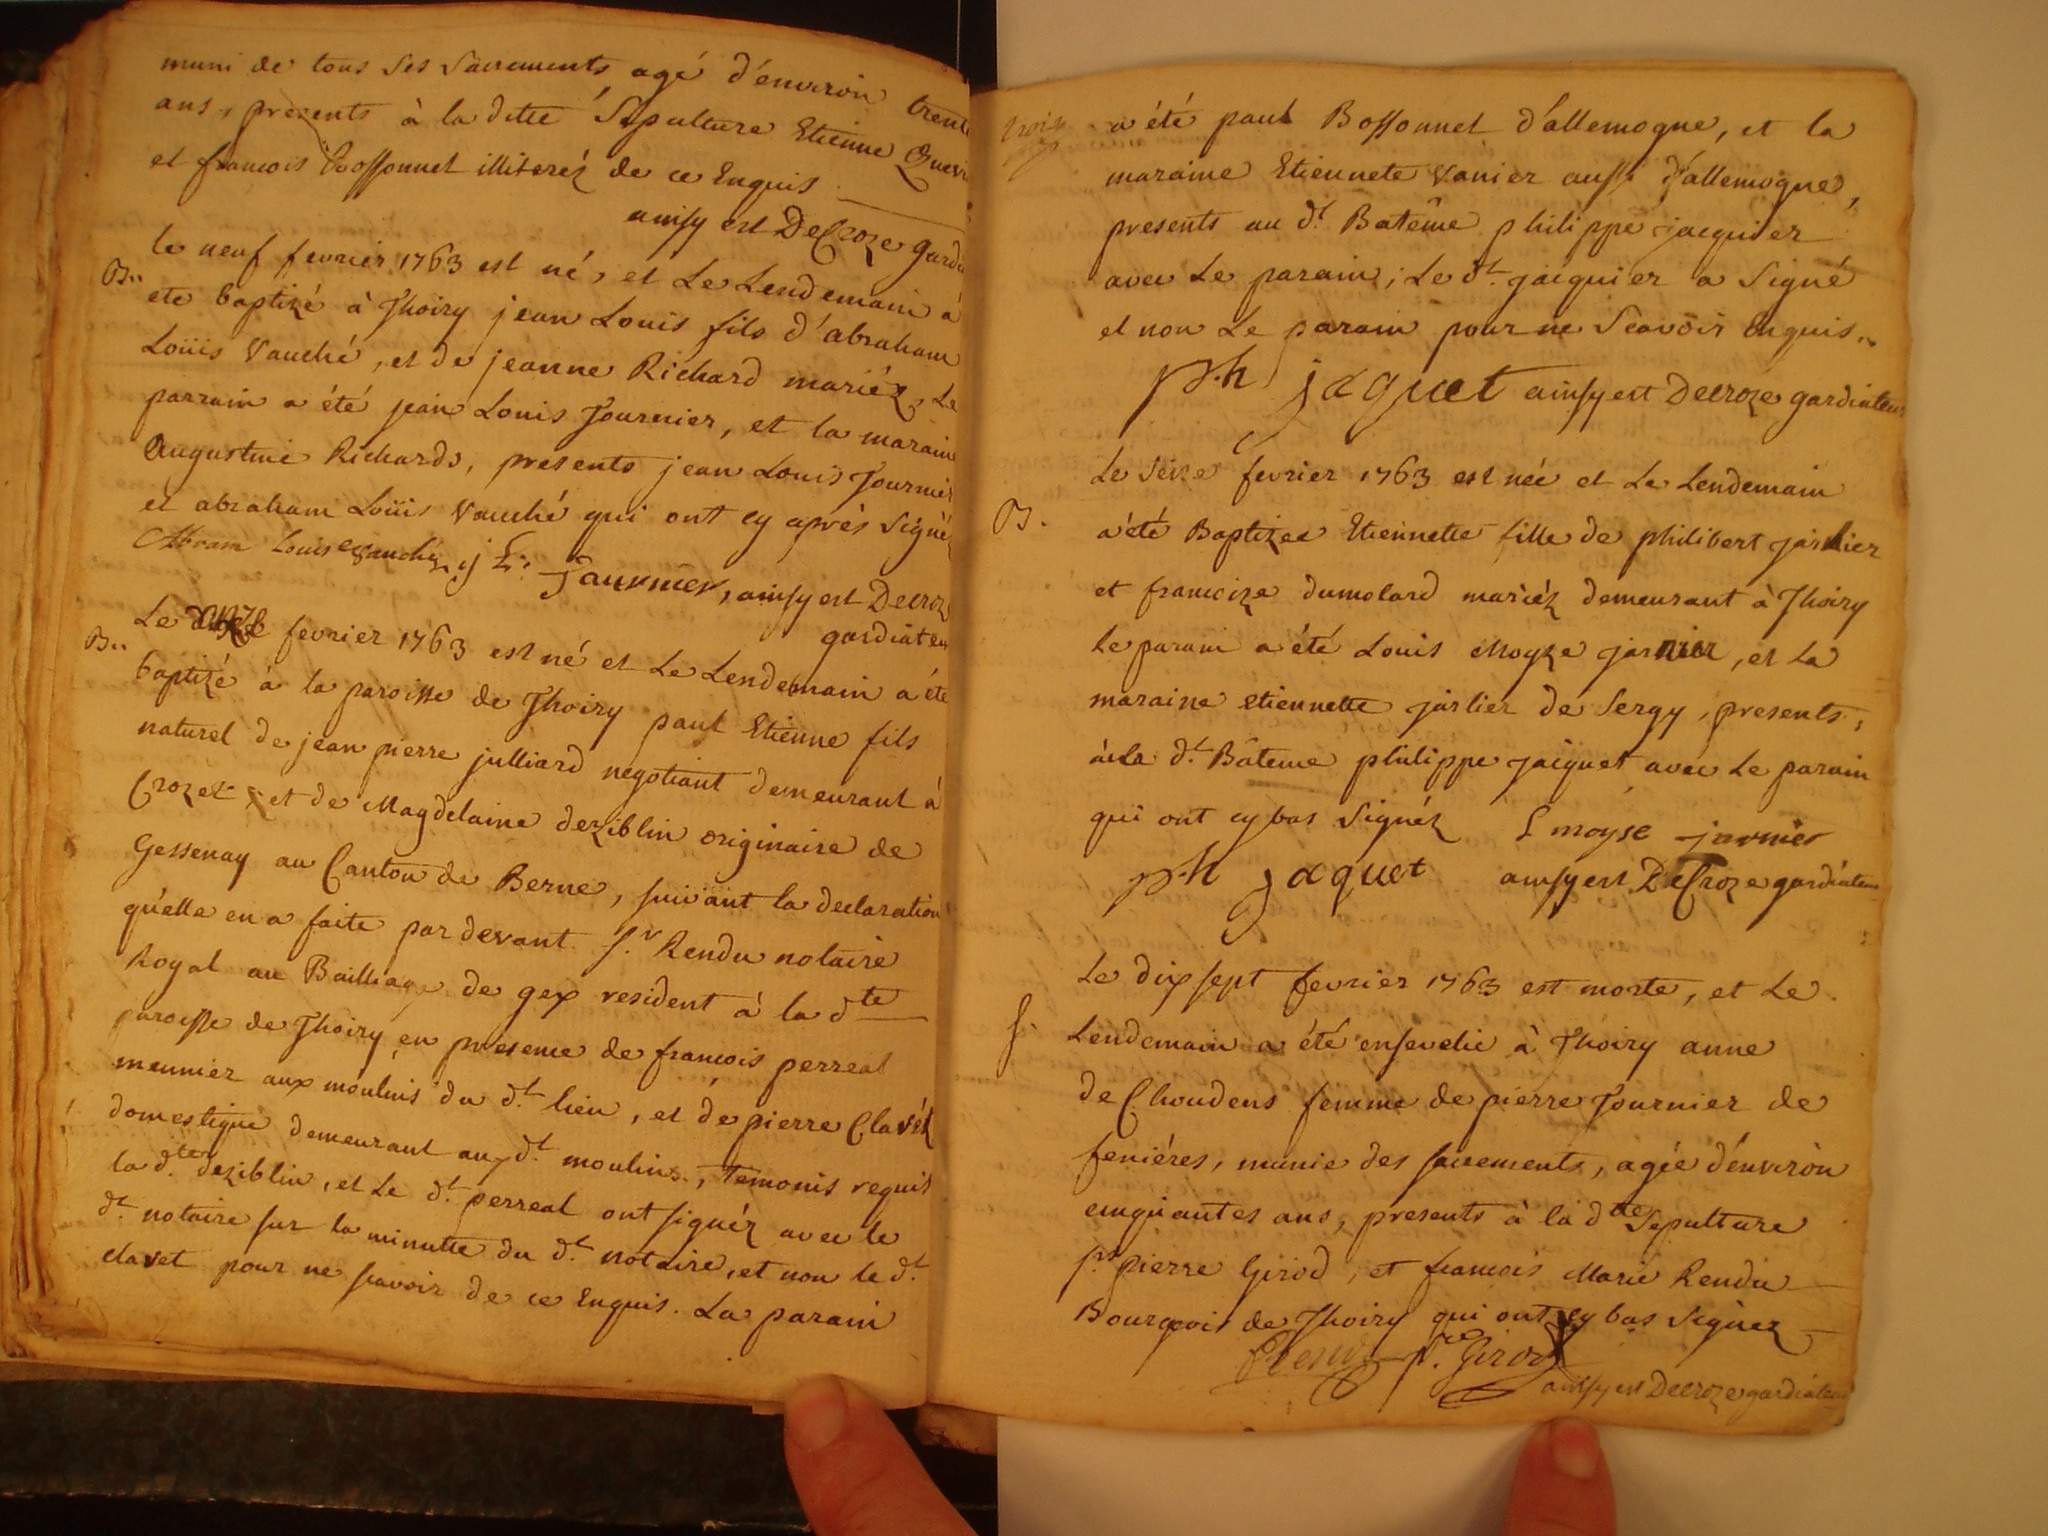 muni de tous ses Sacrements, agé d'environ trente
ans, presents à la ditte Sepulture Etienne
et francois Bossonnet illiterés de ce Enquis
ainsy est DeCroze gardia
B.. le neuf fevrier 1763 est né, et Le Lendemain à
ete baptizé à Thoiry jean Louis fils d'abraham
Loüis Vauché, et de jeanne Richard mariéz, Le
parrain a été jean Louis Tournier, et la marain
Augustine Richards, presents jean Louis Tournier
et abraham Loüis Vauché qui ont cy après Signé
Abram Louis Vauchez j L: Tournier, ainsy est Decroze
gardiateu
B.. Le fevrier 1763 est né et Le Lendemain a éte
baptizé à la paroisse de Thoiry paul Etienne fils
naturel de jean pierre julliard negotiant demeurant à
Crozet et de Magdelaine deziblin originaire de
Gessenay au Canton de Berne, suivant la declaration
qu'elle en a faite par devant Sr. Rendu notaire
Royal au Bailliage de gex resident à la dte
paroisse de Thoiry en presence de francois perreal
meunier aux moulins du dt. lieu, et de pierre Clavét
domestique demeurant aux dt. moulins, Temonis requis
la dte. deziblin, et Le dt. perreal ont signéz avec le
dt. notaire sur la minutte du dt. notaire, et non le dt.
clavet pour ne scavoir de ce Enquis. La parain
trois a été paul Bossonnet d'allemogne, et la
maraine Etiennete Vanier aussi d'allemogne,
presents au dt. Batême philippe jacquier
avec Le parain; Le dt. jaiquier a Signé
et non Le parain pour ne Scavoir Enquis..
ph jaquet ainsy est Decroze gardiateur
Le Seize fevrier 1763 est née et Le Lendemain
B. a été Baptizee Etiennette fille de philibert jarlier
et francoize dumolard mariéz demeurant à Thoiry
Le parain a été Louis Moyze jarnier, et La
maraine etiennette jarlier de Sergy, presents,
à la dt. Bâteme philippe jaiquet avec Le parain
qui ont cy bas Signéz L moyse jarnier
ph jaquet ainsy est DeCroze gardiateur
Le dix sept fevrier 1763 est morte, et Le
S. Lendemain a été ensevelie à Thoiry anne
de Choudens femme de pierre Tournier de
feniéres, munie des sacrements, agée d'environ
cinquantes ans, presents à la dtte Sepulture
Srs pierre Girod, et francois Marie Rendu
Bourgeois de Thoiry qui ont cy bas Signez
Rendu pre. Girod
ainsy est Decroze gardiateur